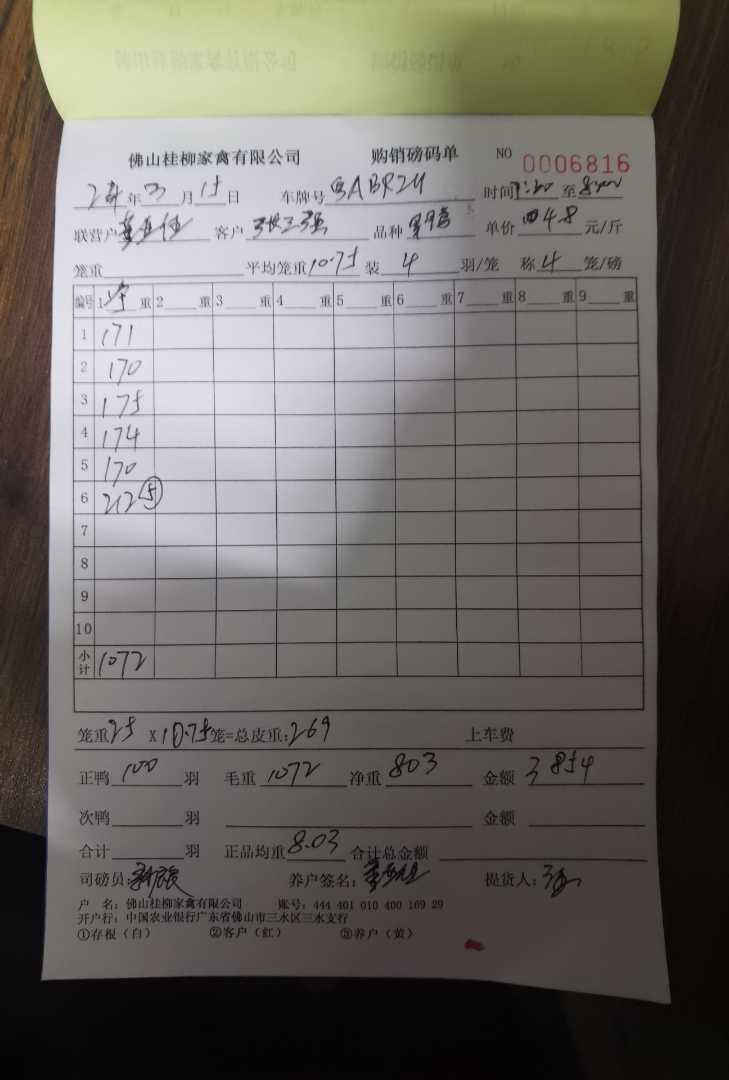 佛山桂柳家禽有限公司 购销磅码单 NO 0006816
年 3 月 15 日 车牌号 时间 7:30 至 8:00
联营户 客户 张三强 品种 单价 4.8 元/斤
笼重 平均笼重 10.75 装 4 羽/笼 称 4 笼/磅
编号 1 重 2 重 3 重 4 重 5 重 6 重 7 重 8 重 9 重
1 171
2 170
3 175
4 174
5 170
6 212 ⑤
7
8
9
10
小计 1072
笼重 25 X 10.75 笼=总皮重: 269 上车费
正鸭 100 羽 毛重 1072 净重 803 金额 3854
次鸭 羽 金额
合计 羽 正品均重 8.03 合计总金额
司磅员: 养户签名: 提货人:
户 名: 佛山桂柳家禽有限公司 账号: 444 401 010 400 169 29
开户行: 中国农业银行广东省佛山市三水区三水支行
①存根（白） ②客户（红） ③养户（黄）